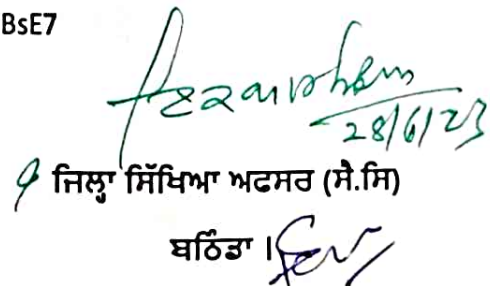 BsE7
28/6/23
ਜਿਲ੍ਹਾ ਸਿੱਖਿਆ ਅਫਸਰ (ਸੈ.ਸਿ)
ਬਠਿੰਡਾ ।